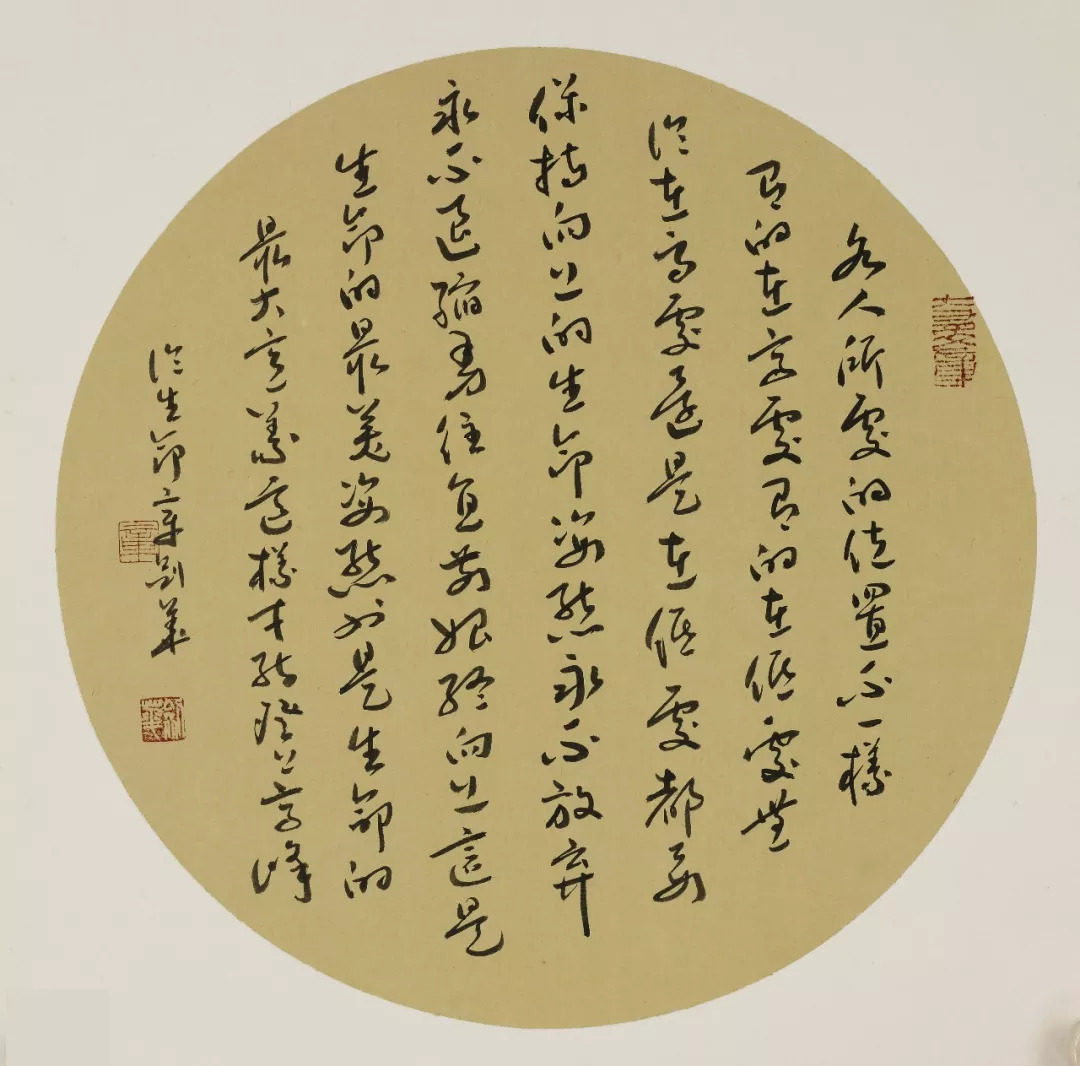 各人所處的位置不一樣
有的在高處有的在低處無
論在高處還是在低處都要
保持向上的生命姿態永不放弃
永不退縮勇往直前始終向上這是
生命的最美姿態也是生命的
最大意義這樣才能登上高峰
論生命 章剑華